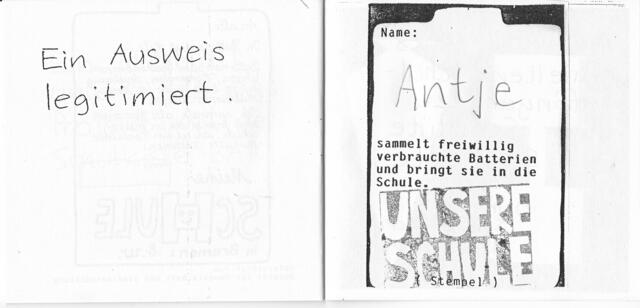 Ein Ausweis
legitimiert.
Name:
Antje
sammelt freiwillig
verbrauchte Batterien
und bringt sie in die
Schule.
UNSERE
SCHULE
( Stempel )